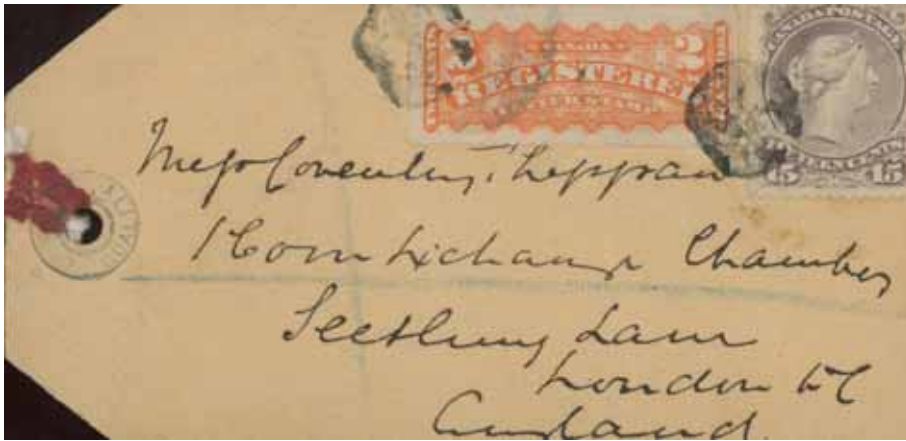 2 CANADA 2
REGISTERED
LETTER STAMP
CANADA POSTAGE
15 15
Messrs Coventry, Sheppard
1 Corn Exchange Chambers
Seething Lane
London EC
England